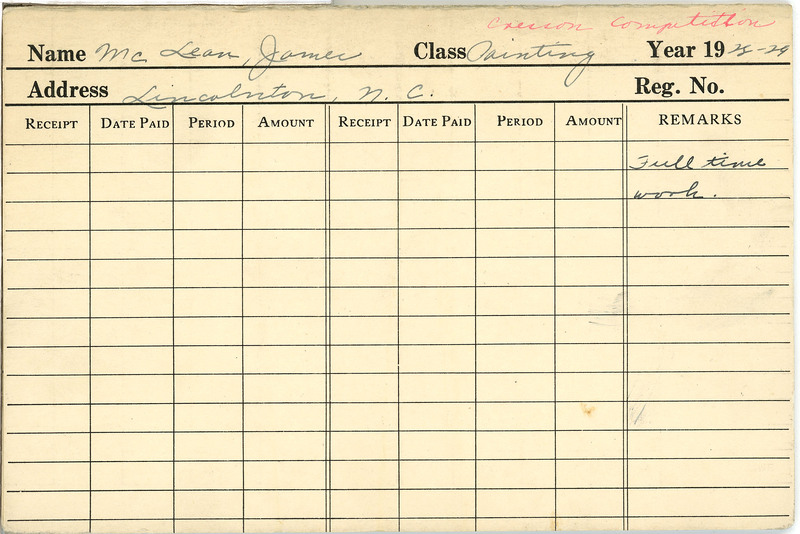 Cresson Competition
Name Mc Lean, James Class Painting Year 19 28-29
Address Lincolnton, N. C. Reg. No.
RECEIPT DATE PAID PERIOD AMOUNT RECEIPT DATE PAID PERIOD AMOUNT REMARKS
Full time
work.